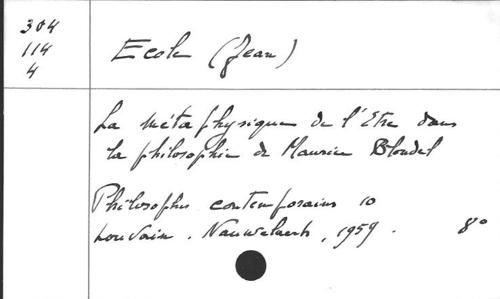 304
114
4
Ecole (Jean)
La métaphysique de l'Etre dans
la philosophie de Maurice Blondel
Philosophes contemporains 10
Louvain. Nauwelaerts, 1959. 8°